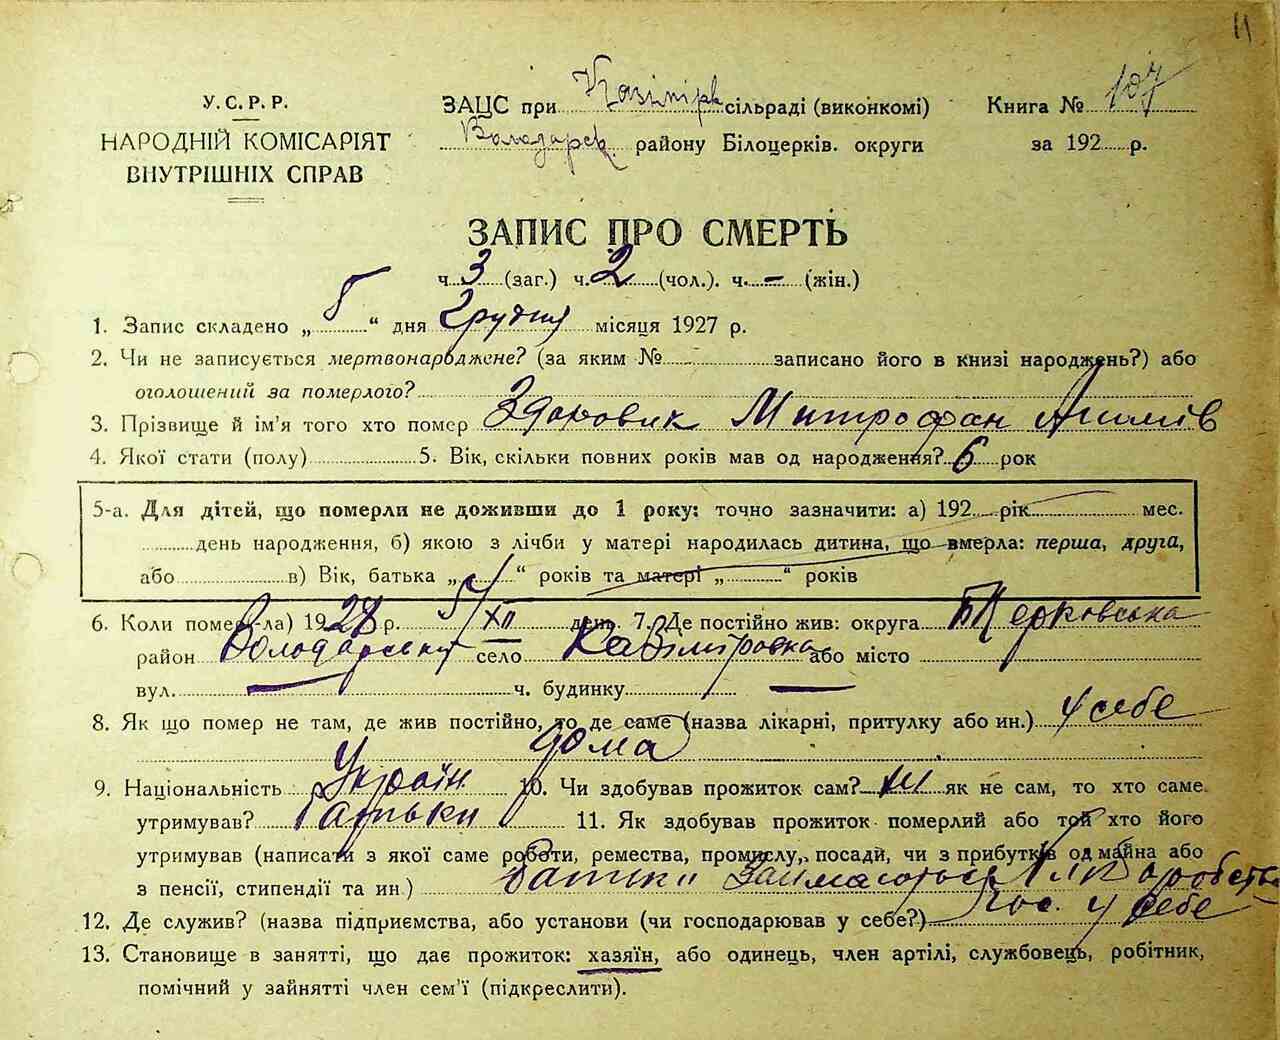 11
У.С.Р.Р.
НАРОДНІЙ КОМІСАРІЯТ
ВНУТРІШНІХ СПРАВ
ЗАЦС при Казімірк сільраді (виконкомі)
Володарск. району Білоцерків. округи
Книга № 107
за 192 р.
ЗАПИС ПРО СМЕРТЬ
ч. 3 (заг.) ч. 2 (чол.). ч. - (жін.)
1. Запис складено „ 5 “ дня Грудня місяця 1927 р.
2. Чи не записується мертвонароджене? (за яким № записано його в книзі народжень?) або
оголошений за померлого?
3. Прізвище й ім'я того хто помер Здоровик Митрофан
4. Якої стати (полу) 5. Вік, скільки повних років мав од народження? 6 рок
5-а. Для дітей, що померли не доживши до 1 року: точно зазначити: а) 192 рік мес.
день народження, б) якою з лічби у матері народилась дитина, що вмерла: перша, друга,
або в) Вік, батька „ “ років та матері „ “ років
6. Коли помер(-ла) 19 р. 5/XII день. 7. Де постійно жив: округа БЦерковська
район Володарський село Казіміровка або місто
вул. — ч. будинку —
8. Як що помер не там, де жив постійно, то де саме (назва лікарні, притулку або ин.) у себе
дома
9. Національність Україн 10. Чи здобував прожиток сам? ні як не сам, то хто саме
утримував? батьки 11. Як здобував прожиток померлий або той хто його
утримував (написати з якої саме роботи, ремества, промислу, посади, чи з прибутків од майна або
з пенсії, стипендії та ин.) батьки займаються
12. Де служив? (назва підприємства, або установи (чи господарював у себе?) гос. у себе
13. Становище в занятті, що дає прожиток: хазяїн, або одинець, член артілі, службовець, робітник,
помічний у зайнятті член сем'ї (підкреслити).